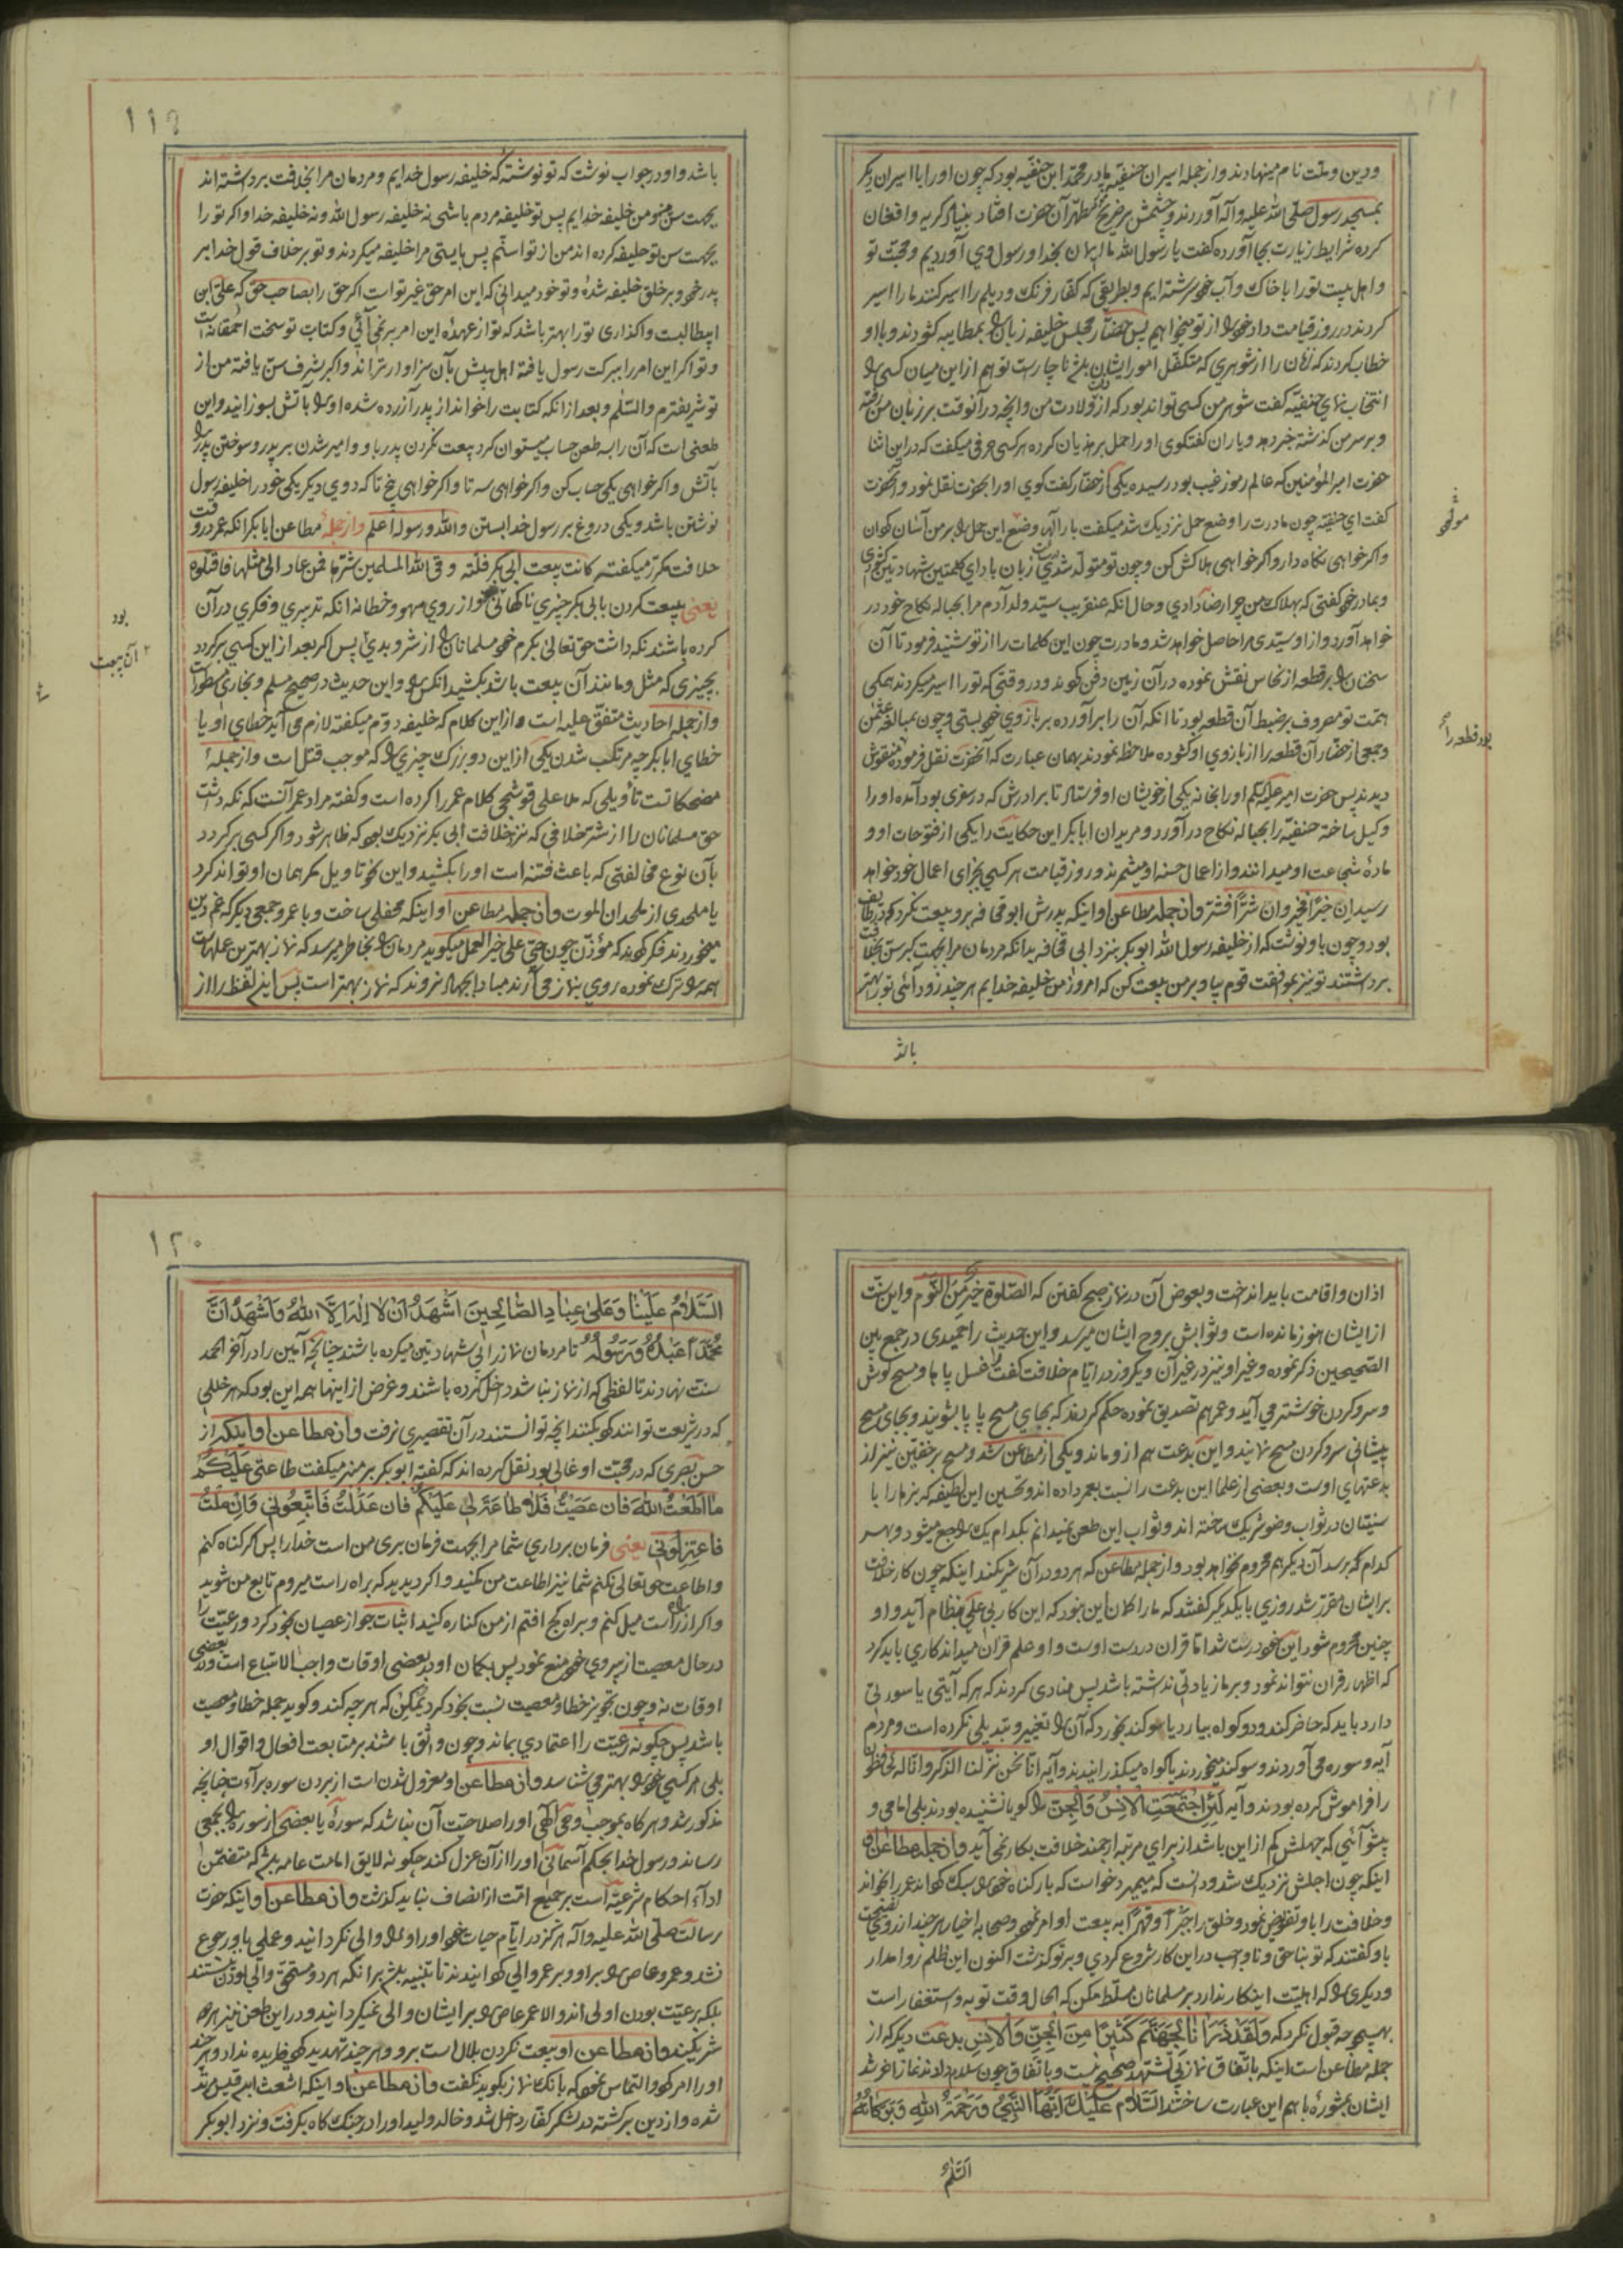 ودین وملت نام مینهادند واز جمله اسیران حنفیه مادر محمد ابن حنفیه بود که چون اورا با اسیران دیگر
بمسجد رسول صلی الله علیه وآله آوردند وچشمش بر ضریح مطهر آن حضرت افتاد بنیاد کریه وافغان
کرده شرایط زیارت بجا آورده کفت یا رسول الله ما ایمان بخدا ورسول وی آوردیم ومحبت تو
واهل بیت تورا با خاک وآب خود سرشته ایم وبطریقی که کفار فرنک ودیلم را اسیر کنند ما را اسیر
کردند در روز قیامت داد خود را از تو میخواهیم پس حضار مجلس خلیفه زبان را بمطایبه کشودند وبا او
خطاب کردند که زنان را از شوهری که متکفل امور ایشان باشد ناچار است تو هم از این میان کسی را
انتخاب نمای حنفیه کفت شوهر من کسی تواند بود که از ولادت من وانچه در آنوقت بر زبان من رفته
وبر سر من کذشته خبر دهد ویاران کفتکوی اورا حمل بر هذیان کرده هر کسی حرفی میکفت که در این اثنا
حضرت امیر المؤمنین که عالم رموز غیب بود رسیده یکی از حضار کفت کوی اورا بحضرت نقل نمود وآنحضرت
کفت ای حنفیه چون مادرت را وضع حمل نزدیک شد میکفت بار آلها وضع این حمل را بر من آسان کردان
واکر خواهی نکاه دار واکر خواهی هلاکش کن وچون تو متولد شدی زبان بادای کلمتین شهادتین کشودی
وبمادر خود کفتی که بهلاک من چرا رضا دادی وحال انکه عنقریب سید ولد آدم مرا بحباله نکاح خود در
خواهد آورد واز او سیدی مرا حاصل خواهد شد ومادرت چون این کلمات را از تو شنید فرمود تا آن
سخنان را بر قطعه از نحاس نقش نموده در آن زمین دفن کردند ودر وقتی که تورا اسیر میکردند همکی
همت تو مصروف بر ضبط آن قطعه بود تا انکه آن را بر آورده بر بازوی خود بستی وچون بمبالغه عثمن
وجمعی از حضار آن قطعه را از بازوی او کشوده ملاحظه نمودند بهمان عبارت که آنحضرت نقل فرموده منقوش
دیدند پس حضرت امیر علیه السلام اورا بخانه یکی از خویشان او فرستاد تا برادرش که در سفری بود آمده اورا
وکیل ساخته حنفیه را بحباله نکاح در آورد ومریدان ابابکر این حکایت را یکی از فتوحات او و
ماده شجاعت او میدانند واز اعمال حسنه او میشمرند وروز قیامت هر کسی بجزای اعمال خود خواهد
رسید ان خیرا فخیر وان شرا فشر واز جمله مطاعن او اینکه پدرش ابو قحافه بر و بیعت نکرد که در طایف
بود وچون باو نوشت که از خلیفه رسول الله ابو بکر بنزد ابی قحافه بدانکه مردمان مرا بجهت کبر سن بخلافت
برداشتند تو نیز بموافقت قوم بیا وبر من بیعت کن که امروز من خلیفه خدایم هر چند زود آئی تورا بهتر
باشد
بود قطعه را
۱۱۹
باشد واو در جواب نوشت که تو نوشته که خلیفه رسول خدایم ومردمان مرا بخلافت برداشته اند
بجهت سن من ومن خلیفه خدایم پس تو خلیفه مردم باشی نه خلیفه رسول الله ونه خلیفه خدا واکر تو را
بجهت سن تو خلیفه کرده اند من از تو اسنم پس بایستی مرا خلیفه میکردند وتو بر خلاف قول خدا بر
پدر خود وبر خلق خلیفه شده وتو خود میدانی که این امر حق غیر تو است اکر حق را بصاحب حق که علی ابن
ابیطالبست واکذاری تورا بهتر باشد که تو از عهده این امر بر نمی آئی وکتابت تو سخت احمقانه است
وتو اکر این امر را ببرکت رسول یافته اهل بیتش بآن سزاوارترند واکر بشرف سن یافته من از
تو شریفترم والسلم وبعد از انکه کتابت را خواند از پدر آزرده شده او را بآتش بسوزانید واین
طعنی است که آن را سه طعن حساب میتوان کرد بیعت نکردن پدر با او وامیر شدن بر پدر وسوختن پدر را
بآتش واکر خواهی یکی حساب کن واکر خواهی سه تا واکر خواهی پنج تا که دوی دیکر یکی خود را خلیفه رسول
نوشتن باشد ویکی دروغ بر رسول خدا بستن والله ورسوله اعلم واز جمله مطاعن ابا بکر انکه عمر در وقت
خلافت مکرر میکفت کانت بیعت ابی بکر فلتة وقی الله المسلمین شرها فمن عاد الی مثلها فاقتلوه
یعنی بیعت کردن با ابی بکر چیزی ناکهانی بود از روی سهو وخطا نه انکه تدبیری وفکری در آن
کرده باشند نکه داشت حق تعالی بکرم خود مسلمانان را از شر وبدی پس اکر بعد از این کسی بر کردد
بچیزی که مثل ومانند آن بیعت باشد بکشید انکس را واین حدیث در صحیح مسلم وبخاری مسطور است
واز جمله احادیث متفق علیه است واز این کلام که خلیفه دوم میکفته لازم می آید خطای او یا
خطای ابا بکر چه مرتکب شدن یکی از این دو بزرک چیزی را که موجب قتل است واز جمله
مضحکات تأویلی که ملا علی قوشچی کلام عمر را کرده است وکفته مراد عمر آنست که نکه داشت
حق مسلمانان را از شر خلافی که نزد خلافت ابی بکر نزدیک بود که ظاهر شود واکر کسی بر کردد
بآن نوع مخالفتی که باعث فتنه است اورا بکشید واین نحو تاویل مکر همان او تواند کرد
یا ملحدی از ملحدان الموت واز جمله مطاعن او اینکه محفلی ساخت وبا عمر وجمعی دیکر که غم دین
میخوردند فکر کردند که مؤذن چون حی علی خیر العمل میکوید مردمان را بخاطر میرسد که نماز بهترین عملهاست
همه را ترک نموده روی بنماز می آرند مبادا بجهاد نروند که نماز بهتر است پس این لفظ را از
بود
آن بیعت
اذان واقامت باید انداخت وبعوض آن در نماز صبح کفتن که الصلوة خیر من النوم واین سنت
از ایشان هنوز مانده است وثوابش بروح ایشان میرسد واین حدیث را حمیدی در جمع بین
الصحیحین ذکر نموده وغیر او نیز در غیر آن ویکروز در ایام خلافت کفت مرا غسل پاها ومسح کوش
وسر وکردن خوشتر می آید وعمر هم تصدیق نموده حکم کردند که بجای مسح پا پا بشویند وبجای مسح
پیشانی سر وکردن مسح نمایند واین بدعت هم از و ماند ویکی از مطاعن شد ومسح بر خفین نیز از
بدعتهای اوست وبعضی از علما این بدعت را نسبت بعمر داده اند وتحسین این لطیفه که بزها را با
سنیان در ثواب وضو شریک ساخته اند وثواب این طعن نمیدانم بکدام یک راجع میشود وبهر
کدام که برسد آن دیکر هم محروم نخواهد بود واز جمله مطاعن که هر دو در آن شریکند اینکه چون کار خلافت
بر ایشان مقرر شد روزی با یکدیکر کفتند که ما را کمان این نبود که این کار بی علی بنظام آید واو
چنین محروم شود این خود درست شد اما قران در دست اوست واو علم قران میداند کاری باید کرد
که اظهار قران نتواند نمود وبر ما زیادتی نداشته باشد پس منادی کردند که هر که آیتی یا سورتی
دارد باید که حاضر کند ودو کواه بیارد یا سوکند بخورد که آن را تغییر وتبدیلی نکرده است ومردم
آیه وسوره می آوردند وسوکند میخوردند یا کواه میکذرانیدند وآیه انا نحن نزلنا الذکر وانا له لحافظون
را فراموش کرده بودند وآیه لئن اجتمعت الانس والجن را کویا نشنیده بودند بلی امامی و
پیشوائی که جهلش کم از این باشد از برای مرتبه ارجمند خلافت بکار نمی آید واز جمله مطاعن او
اینکه چون اجلش نزدیک شد ودانست که میمیرد خواست که بار کناه خود را سبک کرداند عمر را بخواند
وخلافت را باو تفویض نمود وخلق را جبرا وقهرا به بیعت او امر نمود وصحابه اخیار هر چند از روی نصیحت
باو کفتند که تو بناحق وناواجب در این کار شروع کردی وبر تو کذشت اکنون این ظلم روا مدار
ودیکری را که اهلیت اینکار ندارد بر سلمانان مسلط مکن که الحال وقت توبه واستغفار است
بهیچوجه قبول نکرد که ولقد ذرانا لجهنم کثیرا من الجن والانس بدعت دیکر که از
جمله مطاعن است اینکه باتفاق نماز بی تشهد صحیح نیست وباتفاق چون سلام دادند نماز آخر شد
ایشان بمشوره با هم این عبارت ساختند السلام علیک ایها النبی ورحمة الله وبرکاته
السلام
۱۲۰
السلام علینا وعلی عباد الصالحین اشهد ان لا اله الا الله واشهد ان
محمدا عبده ورسوله تا مردمان نماز را بی شهادتین میکرده باشند چنانچه آمین را در آخر الحمد
سنت نهادند تا لفظی که از نماز نباشد داخل کرده باشند وغرض از اینها همه این بود که هر خللی
که در شریعت توانند کرد بکنند انچه توانستند در آن تقصیری نرفت واز مطاعن او اینکه از
حسن بصری که در محبت او غالی بود نقل کرده اند که کفته ابو بکر بر منبر میکفت طاعتی علیکم
ما اطعت الله فان عصیت فلا طاعة لی علیکم فان عدلت فاتبعونی وان ملت
فاعتزلونی یعنی فرمان برداری شما مرا بجهت فرمان بری من است خدا را پس اکر کناه کنم
واطاعت حق تعالی نکنم شما نیز اطاعت من مکنید واکر دیدید که براه راست میروم تابع من شوید
واکر از راه راست میل کنم وبراه کج افتم از من کناره کنید اثبات جواز عصیان بخود کرد ورعیت را
در حال معصیت از پیروی خود منع نمود پس بکمان او در بعضی اوقات واجب الاتباع است ودر بعضی
اوقات نه وچون تجویز خطا ومعصیت نسبت بخود کرد ممکن که هر چه کند وکوید جمله خطا ومعصیت
باشد پس چکونه رعیت را اعتمادی بماند وچون واثق باشند بر متابعت افعال واقوال او
بلی هر کسی خود را بهتر می شناسد واز مطاعن او معزول شدن است از بردن سوره برآءت چنانچه
مذکور شد وهر کاه بموجب وحی الهی اورا صلاحیت آن نباشد که سوره یا بعضی از سوره را بجمعی
رساند ورسول خدا بحکم آسمانی اورا از آن عزل کند چکونه لایق امامت عامه باشد که متضمن
ادآء احکام شرعیه است بر جمیع امت از انصاف نباید کذشت واز مطاعن او اینکه حضرت
رسالت صلی الله علیه وآله هرکز در ایام حیات خود اورا والی نکردانید وعملی باو رجوع
نشد وعمر وعاص را بر او وبر عمر والی کردانیدند تا تنبیه باشد بر آنکه هر دو مستحق والی بودن نیستند
بلکه برعیت بودن اولی اند والا عمر عاص را بر ایشان والی نمیکردانید ودر این طعن نیز هر دو
شریکند واز مطاعن او بیعت نکردن بلال است بر و وهر چند تهدید کرد فایده نداد وهر چند
اورا امر کرد والتماس نمود که بانک نماز بکوید نکفت واز مطاعن او اینکه اشعث ابن قیس مرتد
شده واز دین برکشته در لشکر کفار داخل شد وخالد ولید اورا در جنک کاه بکرفت ونزد ابو بکر